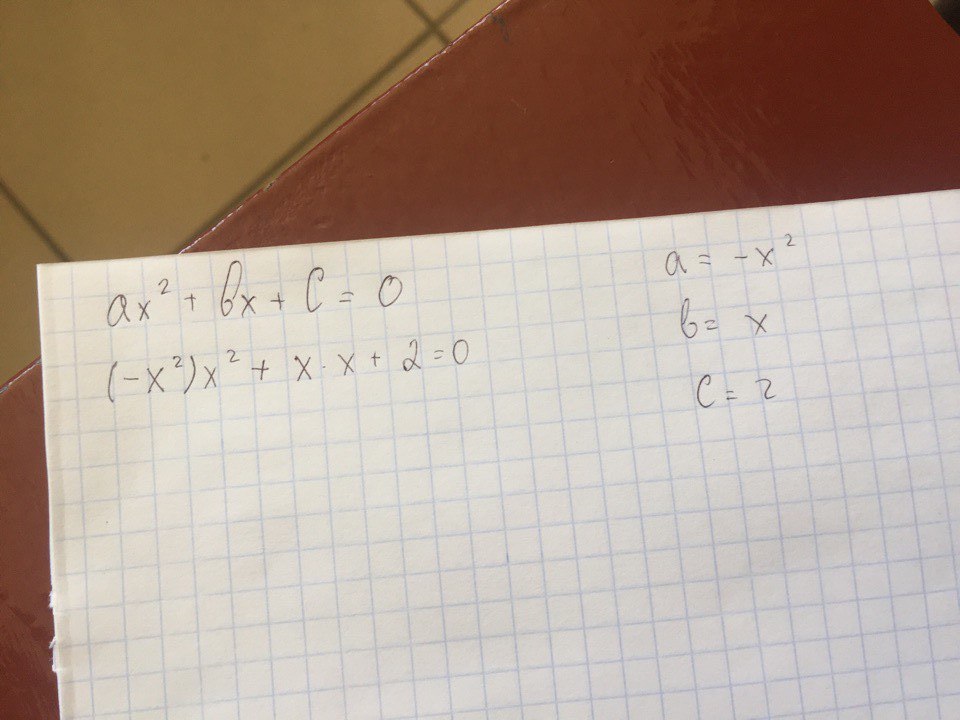 ax² + bx + C = 0
(-x²)x² + x · x + 2 = 0
a = -x²
b = x
C = 2